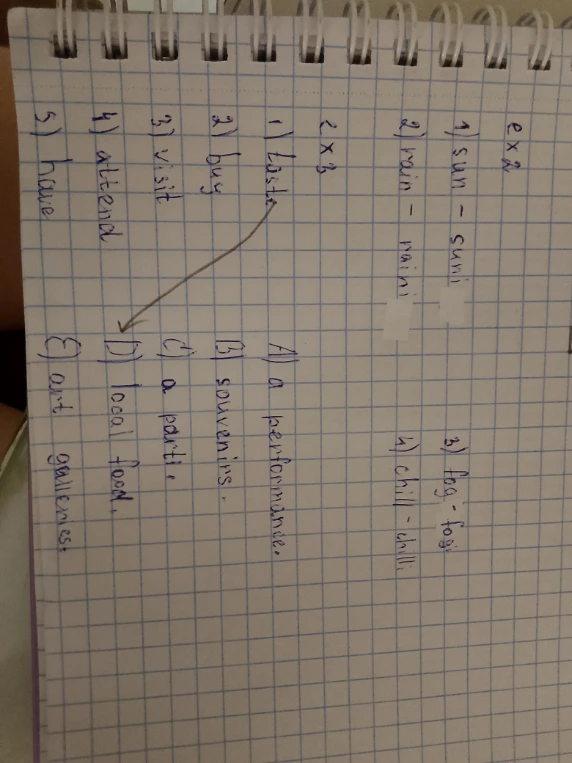 ex2
1) sun - suni 3) fog - fogi
2) rain - raini 4) chill - chilli
ex3
1) taste A) a performance.
2) buy B) souvenirs.
3) visit C) a parti.
4) attend D) local food.
5) have E) art galleries.